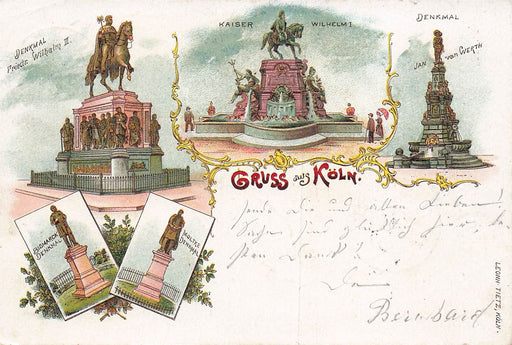 DENKMAL
Friedr. Wilhelm III.
KAISER WILHELM I
DENKMAL
JAN VON WERTH
GRUSS aus KÖLN.
BISMARCK
DENKMAL
MOLTKE
DENKMAL
und allen Lieben!
glücklich hier,
Dank
Bernhard
LEONH. TIETZ, KÖLN.